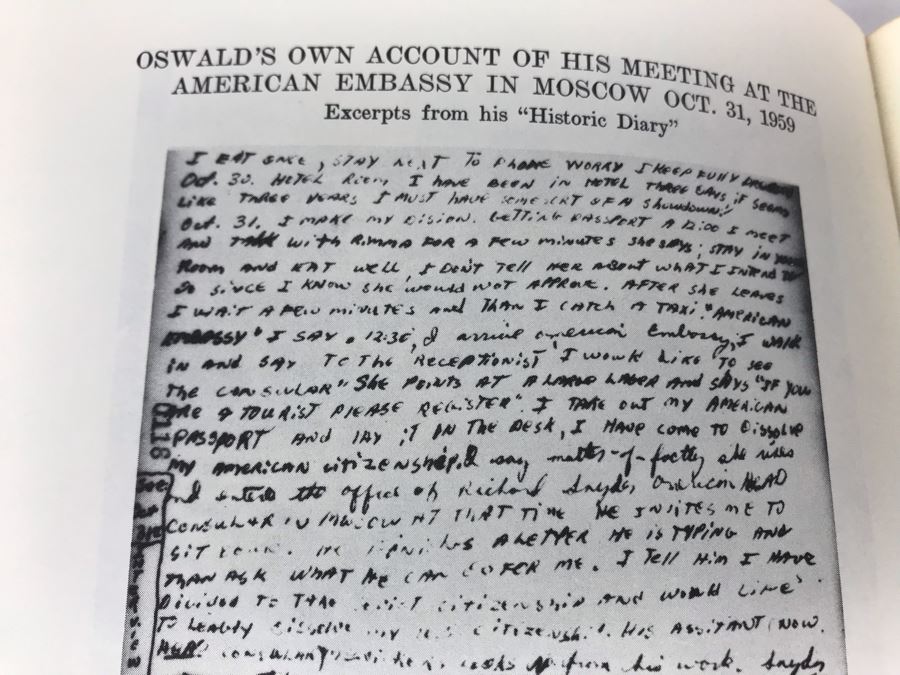 OSWALD'S OWN ACCOUNT OF HIS MEETING AT THE
AMERICAN EMBASSY IN MOSCOW OCT. 31, 1959
Excerpts from his "Historic Diary"
I EAT ONCE, STAY NEXT TO PHONE WORRY I KEEP FULLY DRESSED
Oct. 30. HOTEL ROOM I HAVE BEEN IN HOTEL THREE DAYS, IT SEEMS
LIKE THREE YEARS I MUST HAVE SOME SORT OF A SHOWDOWN!
Oct. 31. I MAKE MY DISION. GETTING PASSPORT A 12:00 I MEET
AND TALK WITH RIMMA FOR A FEW MINUTES SHE SAYS; STAY IN YOUR
ROOM AND EAT WELL, I DON'T TELL HER ABOUT WHAT I INTEND TO
DO SINCE I KNOW SHE WOULD NOT APPROVE. AFTER SHE LEAVES
I WAIT A FEW MINUTES and THAN I CATCH A TAXI. "AMERICAN
EMBASSY" I SAY. 12:30, I arrive american Embassy, I WALK
IN AND SAY TO THE RECEPTIONIST I WOULD LIKE TO SEE
THE CONSULAR" SHE POINTS AT A LARGE LAGER AND SAYS "IF YOU
ARE A TOURIST PLEASE REGISTER". I TAKE OUT MY AMERICAN
PASSPORT AND LAY IT ON THE DESK, I HAVE COME TO DISSOLVE
MY AMERICAN CITIZENSHIP. I say matter-of-factly she rises
and enters the office of Richard Snyder American HEAD
CONSULAR IN MOSCOW AT THAT TIME HE INVITES ME TO
SIT DOWN. HE FINISHES A LETTER HE IS TYPING AND
THAN ASK WHAT HE CAN DO FOR ME. I TELL HIM I HAVE
DIVIDED TO TAKE SOVIET CITIZENSHIP AND WOULD LIKE
TO LEAGLY DISSOLVE MY U.S. CITIZENSHIP. HIS ASSITANT (NOW
HEAD CONSULAR) looks up from his work. Snyder
0116